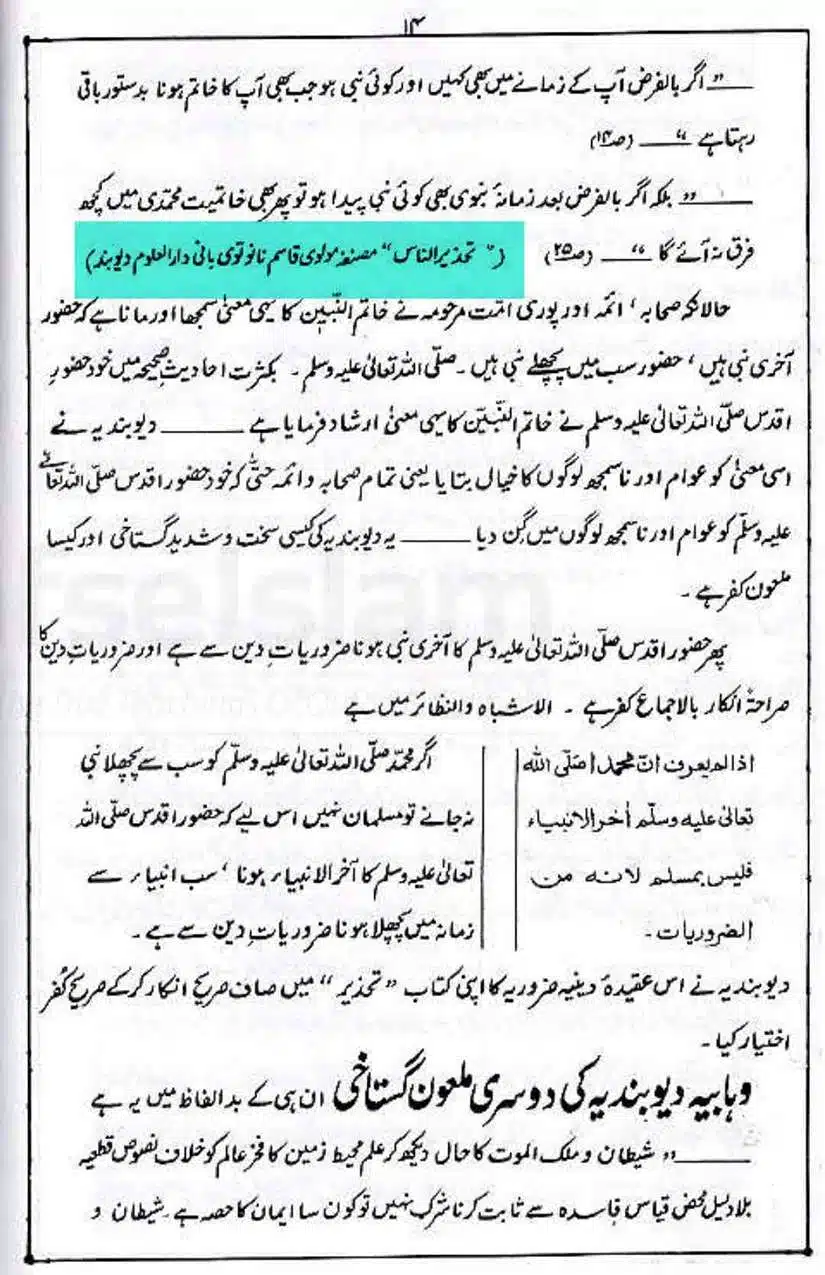 ۱۴
ـــــ ” اگر بالفرض آپ کے زمانے میں بھی کہیں اور کوئی نبی ہو جب بھی آپ کا خاتم ہونا بدستور باقی
رہتا ہے “ ـــــ (ص۱۴)
ـــــ ” بلکہ اگر بالفرض بعد زمانۂ نبوی بھی کوئی نبی پیدا ہو تو پھر بھی خاتمیت محمدی میں کچھ
فرق نہ آئے گا “ ـــــ (ص۲۵) (” تحذیر الناس “ مصنفہ مولوی قاسم نانوتوی بانی دارالعلوم دیوبند)
حالانکہ صحابہ ، ائمہ اور پوری امّت مرحومہ نے خاتم النّبیین کا یہی معنیٰ سمجھا اور مانا ہے کہ حضور
آخری نبی ہیں ، حضور سب میں پچھلے نبی ہیں ۔ صلّی اللہ تعالیٰ علیہ وسلم ۔ بکثرت احادیثِ صحیحہ میں خود حضورِ
اقدس صلّی اللہ تعالیٰ علیہ وسلم نے خاتم النّبیّین کا یہی معنیٰ ارشاد فرمایا ہے ـــــ دیوبندیہ نے
اسی معنیٰ کو عوام اور ناسمجھ لوگوں کا خیال بتایا یعنی تمام صحابہ و ائمہ حتّیٰ کہ خود حضور اقدس صلّی اللہ تعالےٰ
علیہ وسلّم کو عوام اور ناسمجھ لوگوں میں گِن دیا ـــــ یہ دیوبندیہ کی کیسی سخت و شدید گستاخی اور کیسا
ملعون کفر ہے ۔
پھر حضور اقدس صلّی اللہ تعالیٰ علیہ وسلم کا آخری نبی ہونا ضروریاتِ دین سے ہے اور ضروریاتِ دین کا
صراحۃً انکار بالاجماع کفر ہے ۔ الاشباہ والنظائر میں ہے
اذا لم یعرف انّ محمدا صلّی اللہ
تعالیٰ علیہ وسلّم اٰخر الانبیاء
فلیس بمسلم لانہ من
الضروریات ۔
اگر محمّد صلّی اللہ تعالیٰ علیہ وسلّم کو سب سے پچھلا نبی
نہ جانے تو مسلمان نہیں اس لیے کہ حضور اقدس صلّی اللہ
تعالیٰ علیہ وسلم کا آخر الانبیاء ہونا ، سب انبیاء سے
زمانہ میں پچھلا ہونا ضروریاتِ دین سے ہے ۔
دیوبندیہ نے اس عقیدۂ دینیہ ضروریہ کا اپنی کتاب ” تحذیر “ میں صاف صریح انکار کر کے صریح کُفر
اختیار کیا ۔
وہابیہ دیوبندیہ کی دوسری ملعون گستاخی ان ہی کے بد الفاظ میں یہ ہے
ـــــ ” شیطان و ملک الموت کا حال دیکھ کر علم محیط زمین کا فخرِ عالم کو خلاف نصوص قطعیہ
بلا دلیل محض قیاس فاسدہ سے ثابت کرنا شرک نہیں تو کون سا ایمان کا حصہ ہے ۔ شیطان و